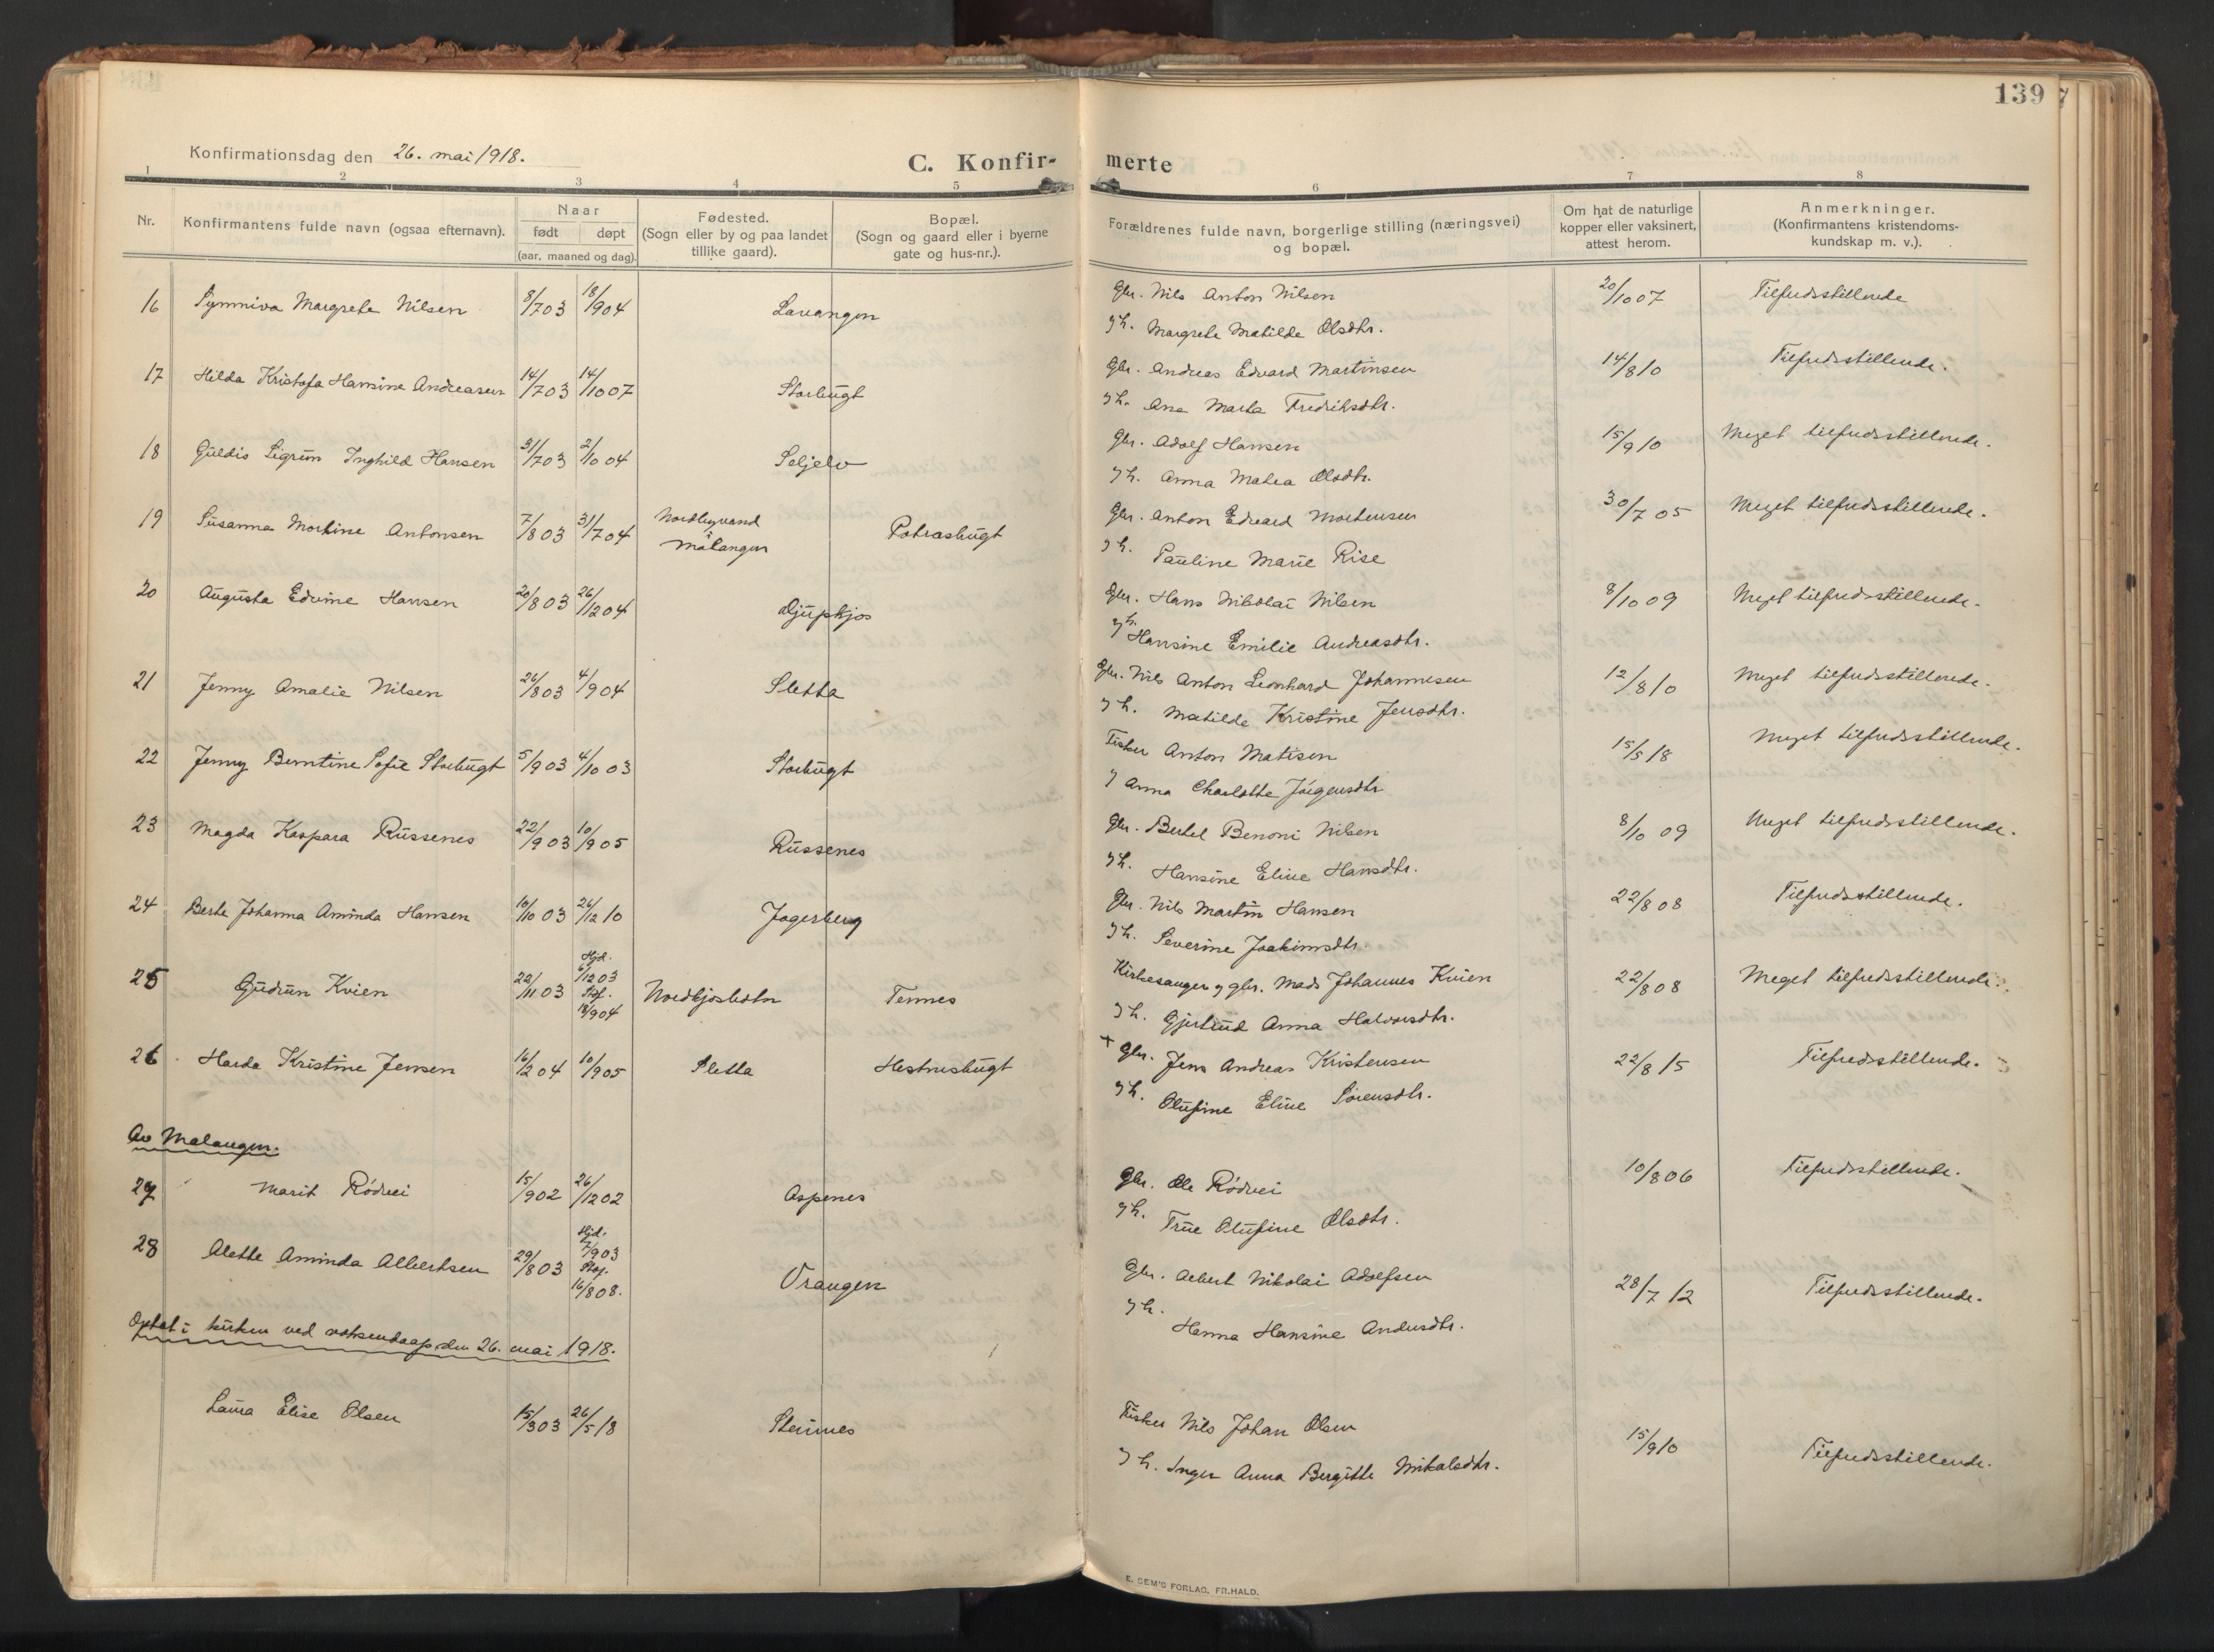 139
Konfirmationsdag den 26. mai 1918.
C. Konfir- merte
1 2 3 4 5 6 7 8
Nr. Konfirmantens fulde navn (ogsaa efternavn). Naar født døpt (aar, maaned og dag). Fødested. (Sogn eller by og paa landet tillike gaard). Bopæl. (Sogn og gaard eller i byerne gate og hus-nr.). Forældrenes fulde navn, borgerlige stilling (næringsvei) og bopæl. Om hat de naturlige kopper eller vaksinert, attest herom. Anmerkninger. (Konfirmantens kristendoms-kundskap m. v.).
16 Synniva Margrete Nilsen 8/7 03 18/9 04 Lavangen Gbr. Nils Anton Nilsen 20/10 07 Tilfredsstillende
og h. Margrete Matilde Olsdtr.
17 Hilda Kristofa Hansine Andreasen 14/7 03 14/10 07 Storbugt Gbr. Andreas Edvard Martinsen 14/8 10 Tilfredsstillende.
og h. Ane Marta Fredriksdtr.
18 Guldis Sigrun Inghild Hansen 31/7 03 2/10 04 Seljelv Gbr. Adolf Hansen 15/9 10 Meget tilfredsstillende.
og h. Anna Matea Olsdtr.
19 Susanna Mortine Antonsen 7/8 03 31/7 04 Nordbyvand i Malangen Potrasbugt Gbr. Anton Edvard Mortensen 30/7 05 Meget tilfredsstillende.
og h. Pauline Marie Rise
20 Augusta Edvine Hansen 20/8 03 26/12 04 Djupkjos Gbr. Hans Nikolai Nilsen 8/10 09 Meget tilfredsstillende.
og h. Hansine Emilie Andreasdtr.
21 Jenny Amalie Nilsen 26/8 03 4/9 04 Sletta Gbr. Nils Anton Leonhard Johannesen 12/8 10 Meget tilfredsstillende.
og h. Matilde Kristine Jensdtr.
22 Jenny Berntine Sofie Storbugt 5/9 03 4/10 03 Storbugt Fisker Anton Matisen 15/5 18 Meget tilfredsstillende.
og Anna Charlotte Jörgensdtr
23 Magda Kaspara Russenes 22/9 03 10/9 05 Russenes Gbr. Bertel Benoni Nilsen 8/10 09 Meget tilfredsstillende.
og h. Hansine Eline Hansdtr.
24 Berte Johanna Aminda Hansen 10/10 03 26/12 10 Jogerberg Gbr. Nils Martin Hansen 22/8 08 Tilfredsstillende.
og h. Severine Joakimsdtr.
25 Gudrun Kvien 22/11 03 Hjd. 6/12 03 Stf. 18/9 04 Nordkjosbotn Tennes Kirkesanger og gbr. Mads Johannes Kvien 22/8 08 Meget tilfredsstillende.
og h. Gjertrud Anna Halvorsdtr.
26 Harda Kristine Jensen 16/2 04 10/9 05 Sletta Hestnesbugt + Gbr. Jens Andreas Kristensen 22/8 15 Tilfredsstillende.
og h. Olufine Eline Sörensdtr.
Av Malangen.
27 Marit Rödvei 15/9 02 26/12 02 Aspenes Gbr. Ole Rödvei 10/8 06 Tilfredsstillende.
og h. Trine Olufine Olsdtr.
28 Alette Aminda Albertsen 29/8 03 Hjd. 7/9 03 Stf. 16/8 08. Vrangen Gbr. Albert Nikolai Adolfsen 28/7 12 Tilfredsstillende.
og h. Hanna Hansine Andersdtr.
Optat i kirken ved voksendaap den 26. mai 1918.
Laura Elise Olsen 15/3 03 26/5 18 Steines Fisker Nils Johan Olsen 15/9 10 Tilfredsstillende.
og h. Inger Anna Bergitte Mikalsdtr.
E. SEM'S FORLAG, FR.HALD.